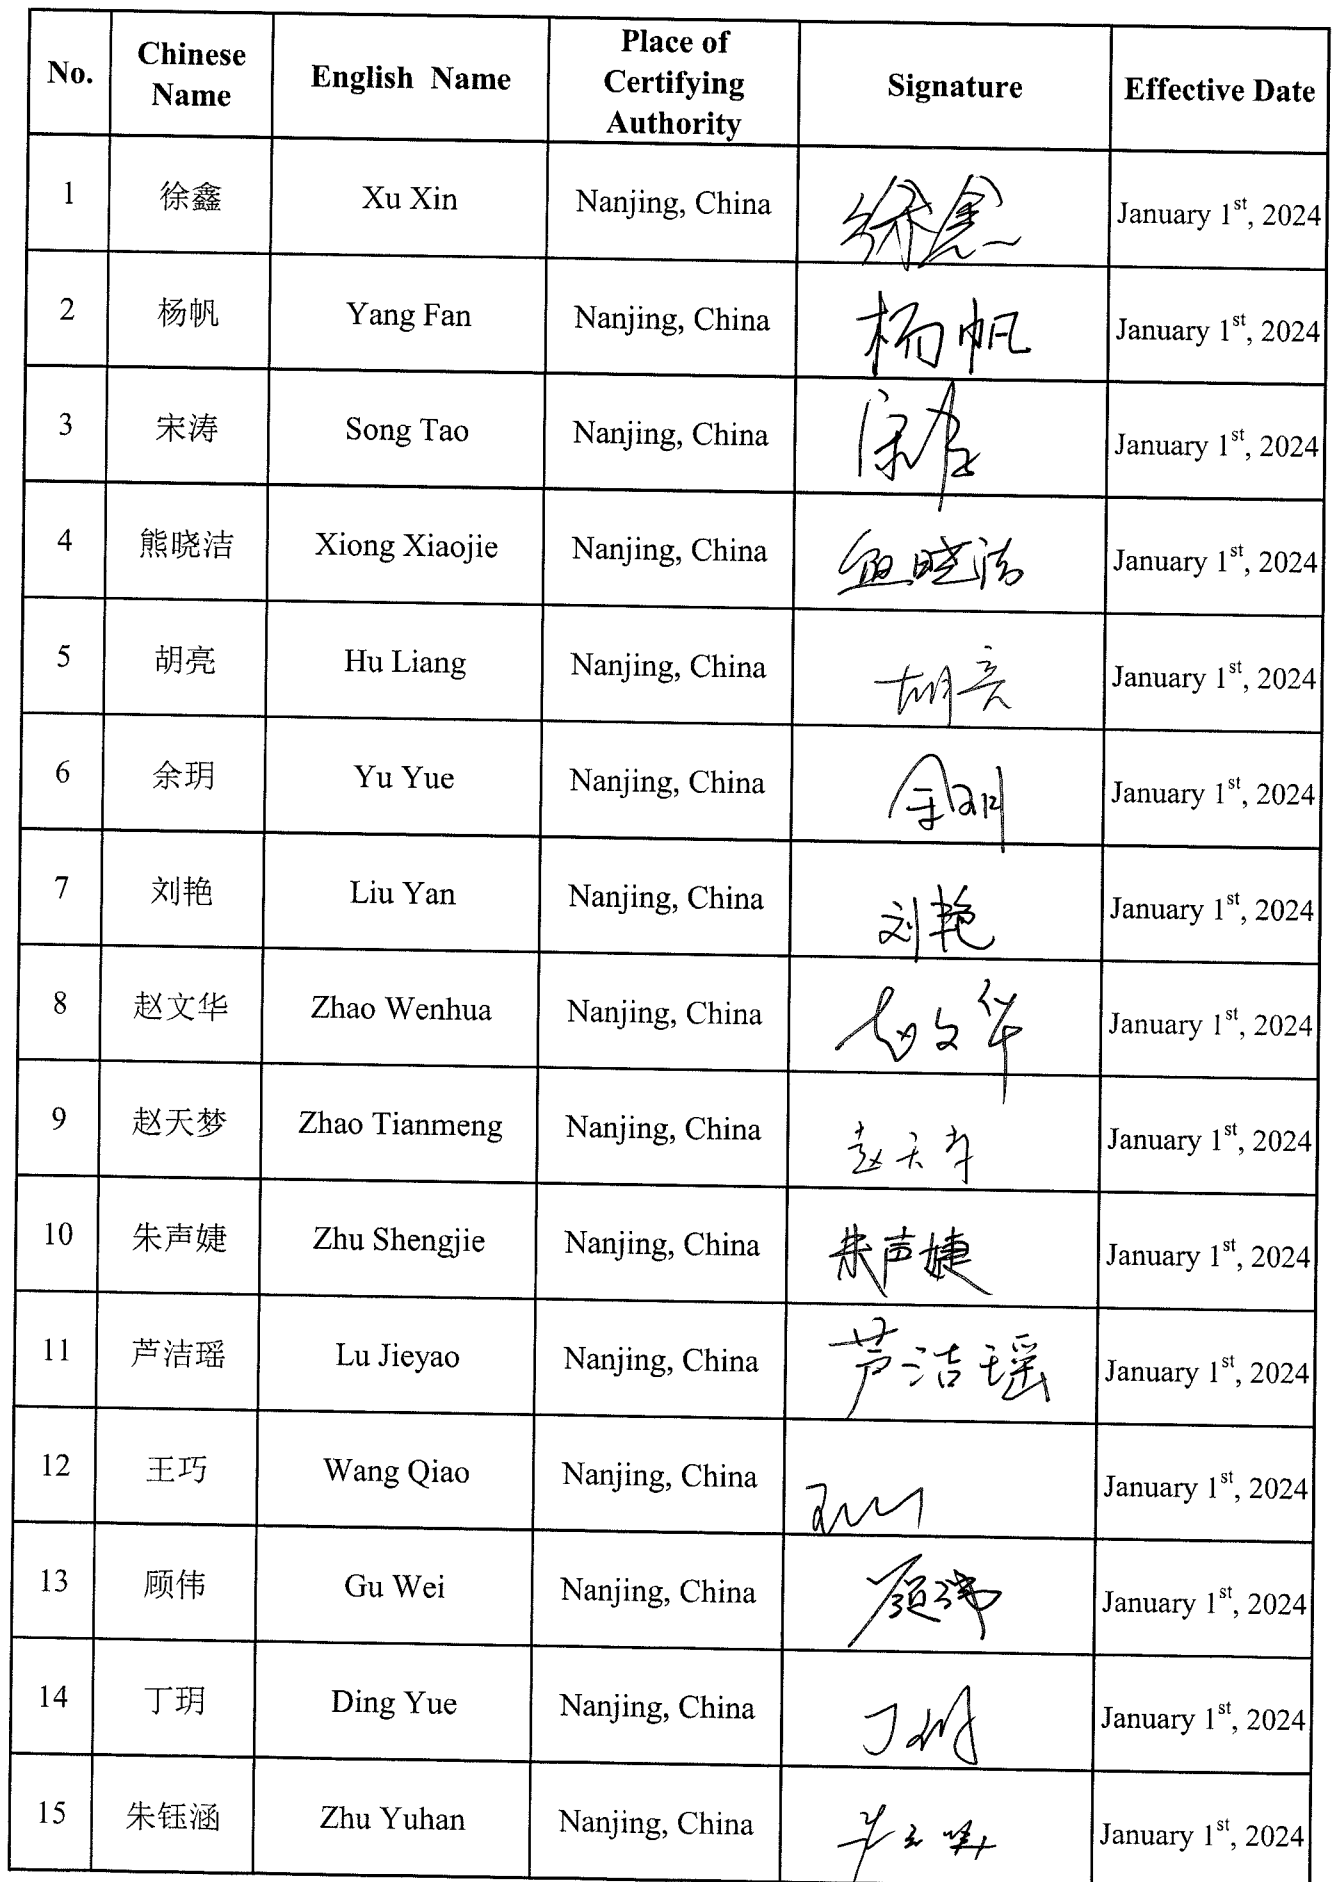 No.
Chinese
Name
English Name
Place of
Certifying
Authority
Signature
Effective Date
1 徐鑫 Xu Xin Nanjing, China 徐鑫 January 1st, 2024
2 杨帆 Yang Fan Nanjing, China 杨帆 January 1st, 2024
3 宋涛 Song Tao Nanjing, China 宋涛 January 1st, 2024
4 熊晓洁 Xiong Xiaojie Nanjing, China 熊晓洁 January 1st, 2024
5 胡亮 Hu Liang Nanjing, China 胡亮 January 1st, 2024
6 余玥 Yu Yue Nanjing, China 余玥 January 1st, 2024
7 刘艳 Liu Yan Nanjing, China 刘艳 January 1st, 2024
8 赵文华 Zhao Wenhua Nanjing, China 赵文华 January 1st, 2024
9 赵天梦 Zhao Tianmeng Nanjing, China 赵天梦 January 1st, 2024
10 朱声婕 Zhu Shengjie Nanjing, China 朱声婕 January 1st, 2024
11 芦洁瑶 Lu Jieyao Nanjing, China 芦洁瑶 January 1st, 2024
12 王巧 Wang Qiao Nanjing, China January 1st, 2024
13 顾伟 Gu Wei Nanjing, China 顾伟 January 1st, 2024
14 丁玥 Ding Yue Nanjing, China 丁玥 January 1st, 2024
15 朱钰涵 Zhu Yuhan Nanjing, China January 1st, 2024